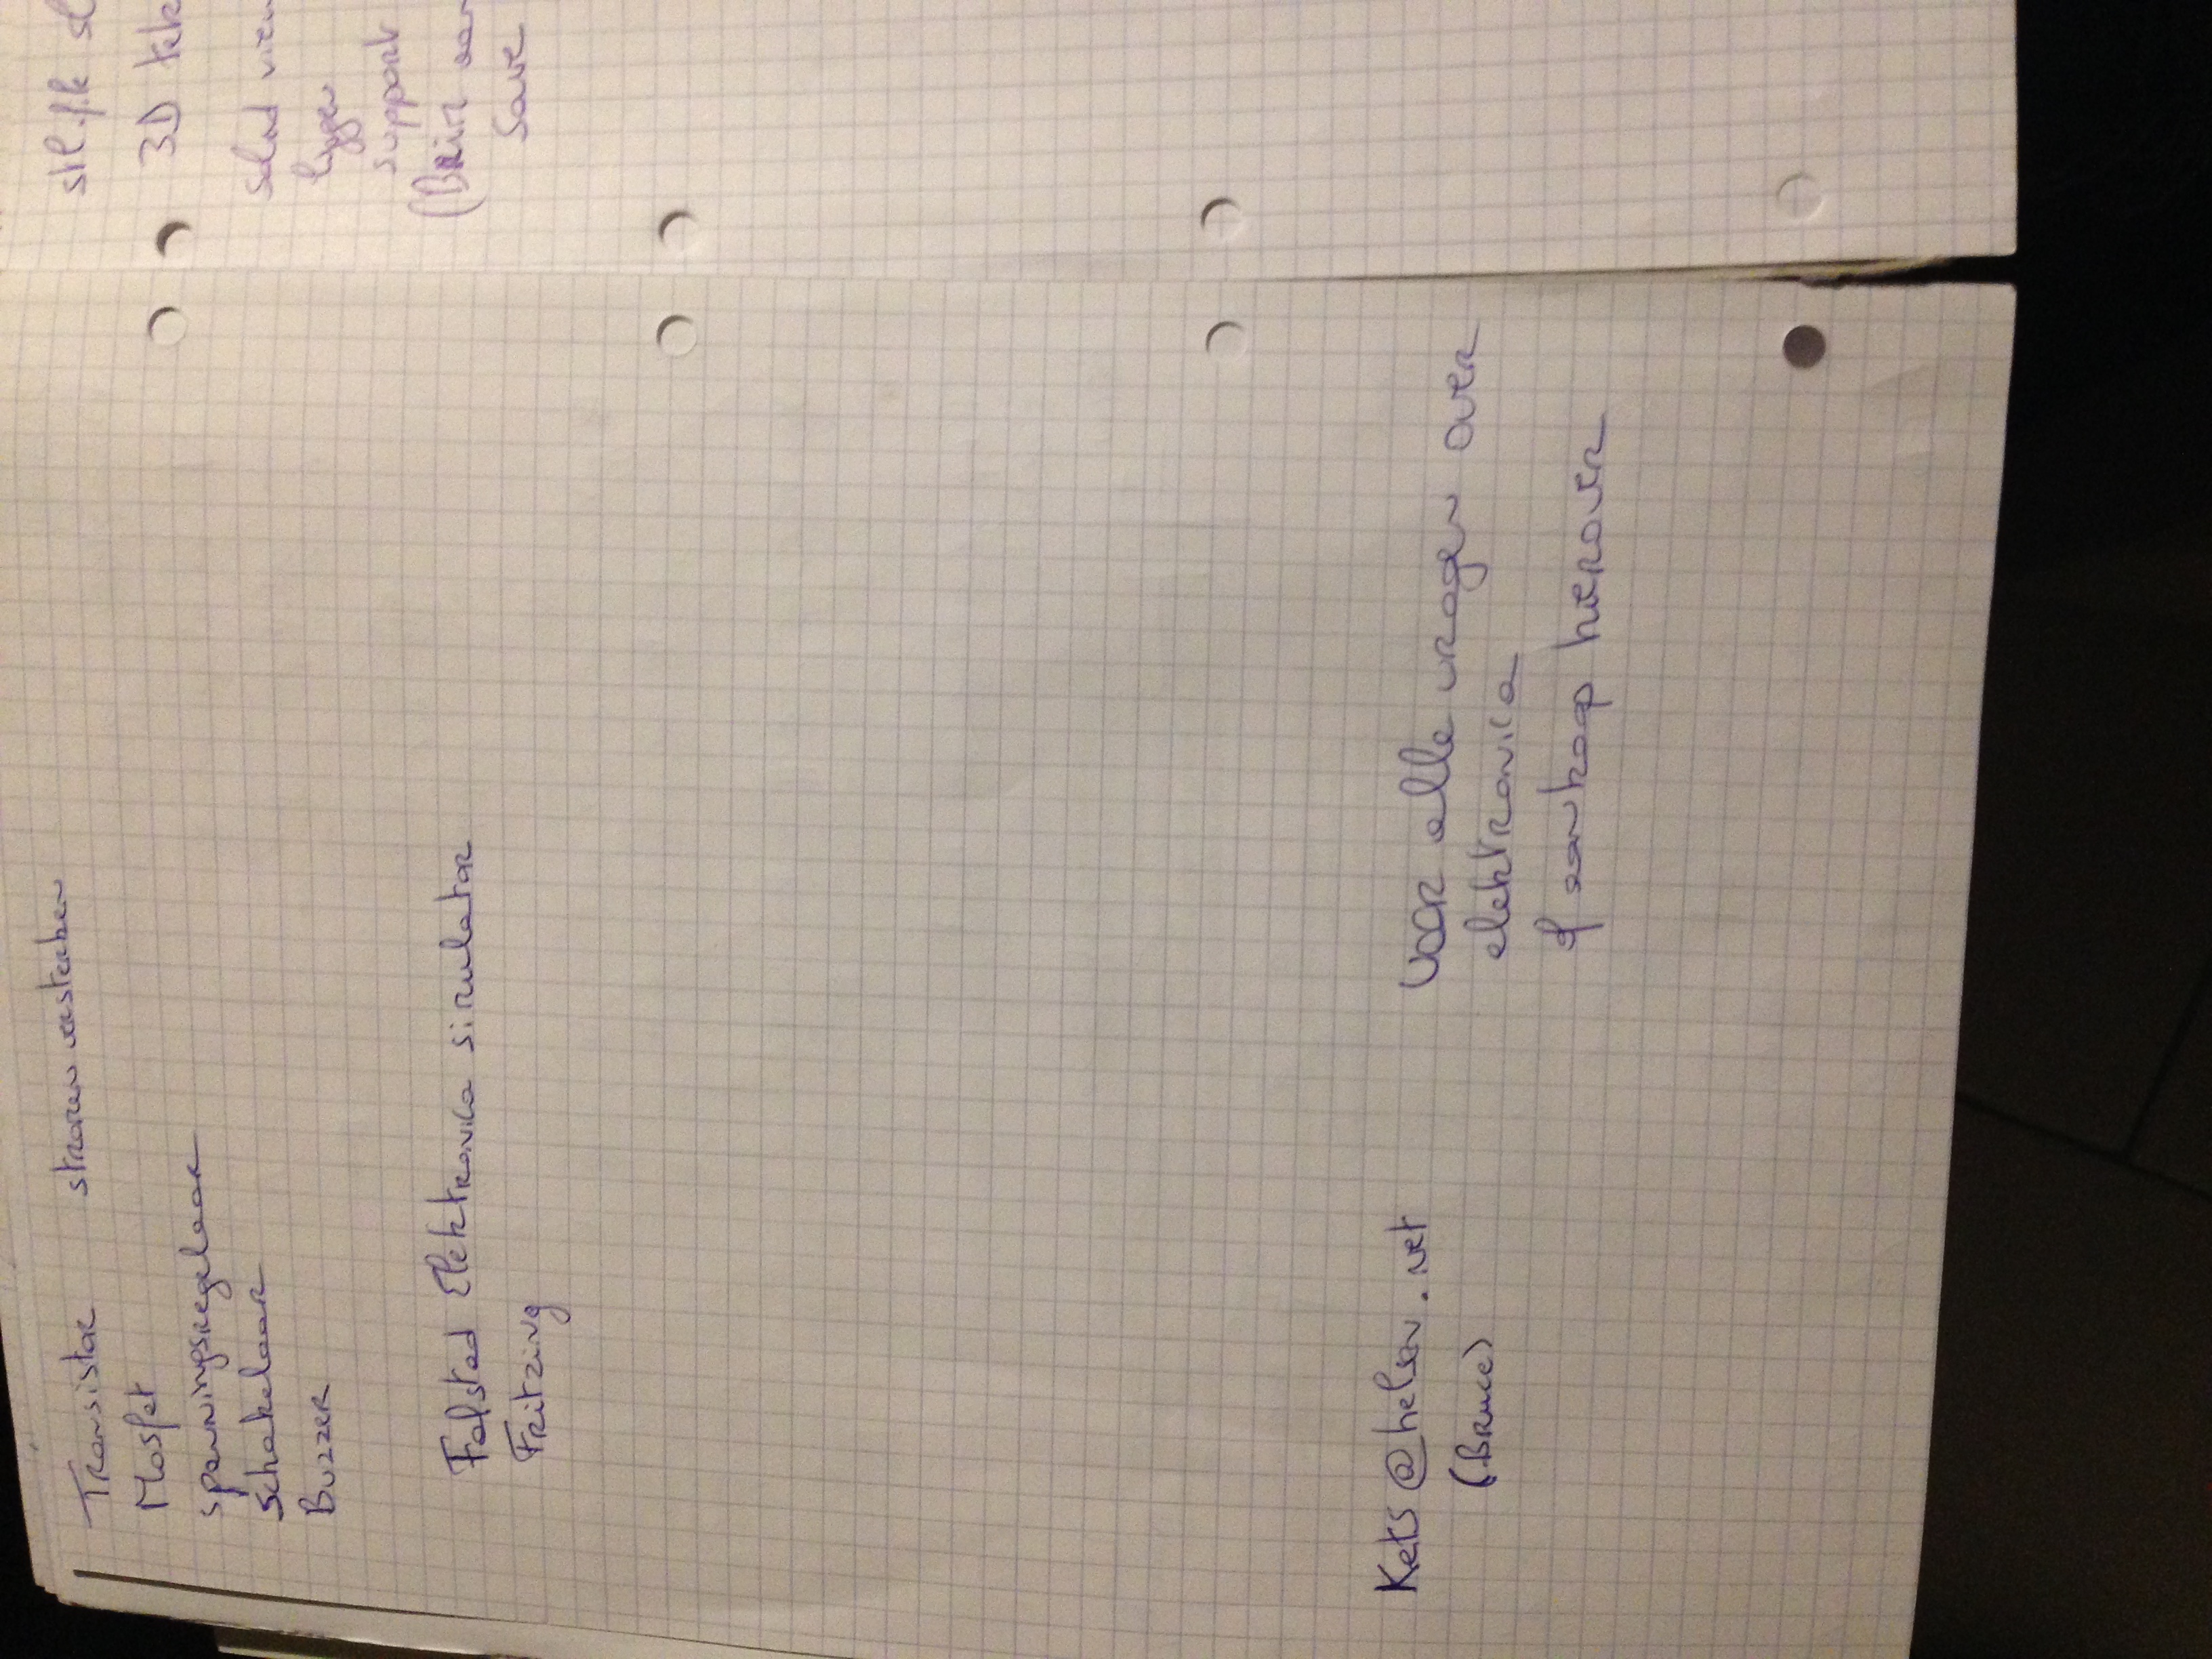 Transistor stroom versterken
Mosfet
spanningsregelaar
schakelaar
Buzzer
Falstad Elektronica simulator
Fritzing
Kets@helson.net
(Bruce)
Voor alle vragen over
elektronica
of aankoop hierover
stl.file
3D
solid
liggen
support
Save